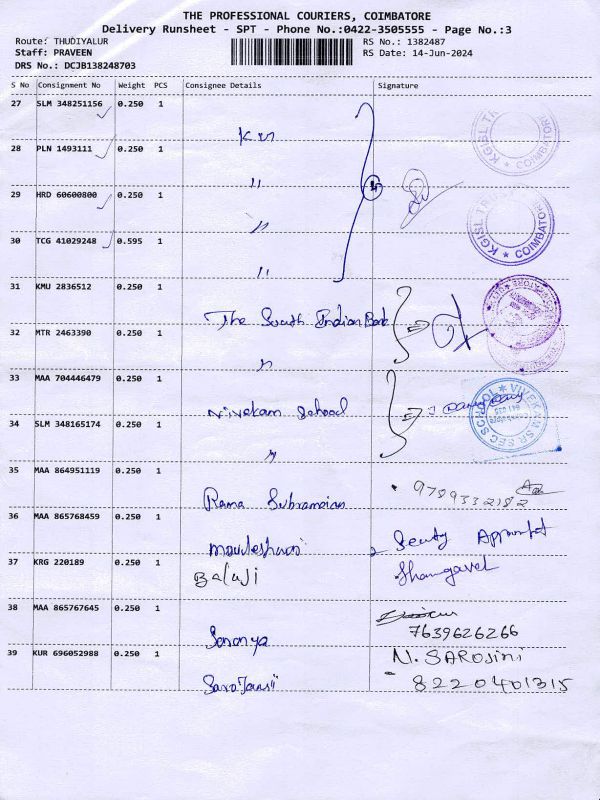 THE PROFESSIONAL COURIERS, COIMBATORE
Delivery Runsheet - SPT - Phone No.:0422-3505555 - Page No.:3
Route: THUDIYALUR RS No.: 1382487
Staff: PRAVEEN RS Date: 14-Jun-2024
DRS No.: DCJB138248703
S No Consignment No Weight PCS Consignee Details Signature
27 SLM 348251156 0.250 1
28 PLN 1493111 0.250 1
"
29 HRD 60600800 0.250 1
"
30 TCG 41029248 0.595 1
"
KGISL COIMBATORE
KGISL COIMBATORE
31 KMU 2836512 0.250 1
The South Indian Bank
32 MTR 2463390 0.250 1
"
33 MAA 704446479 0.250 1
Vivekam School
VIVEKAM SR SEC SCHOOL
34 SLM 348165174 0.250 1
"
35 MAA 864951119 0.250 1
Rama Subramaian 9789332182
36 MAA 865768459 0.250 1
37 KRG 220189 0.250 1
Balaji
38 MAA 865767645 0.250 1
Saranya 7639626266
39 KUR 696052988 0.250 1
N. SAROJini
8220401315